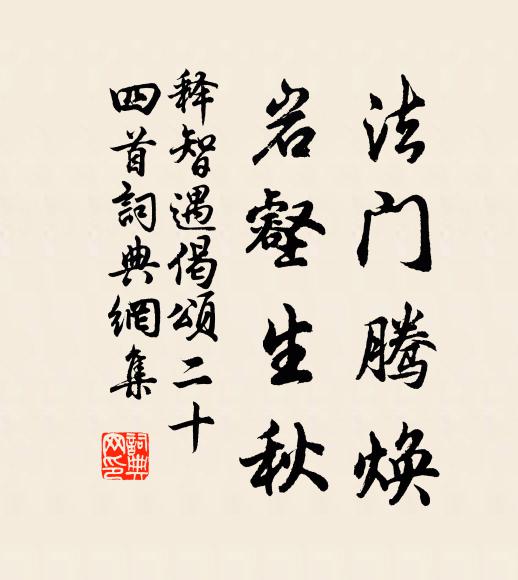 法门腾焕
岩壑生秋
释智遇偈颂二十
四首詞典網集
詞典
网印